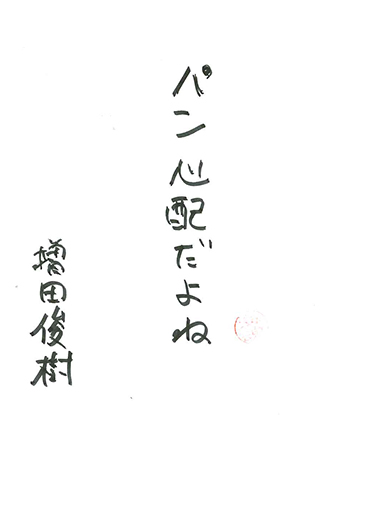 パン心配だよね
増田俊樹